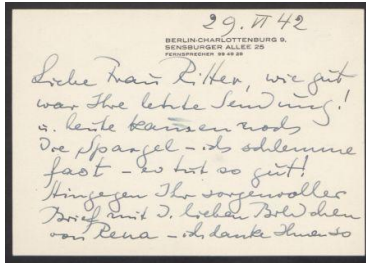 29. VI 42
BERLIN-CHARLOTTENBURG 9,
SENSBURGER ALLEE 25
FERNSPRECHER 99 49 39
Liebe Frau Ritter, wie gut
war Ihre letzte Sendung!
u. heute kamen noch
die Spargel – ich schlemme
fast – es tut so gut!
Hingegen Ihr sorgenvoller
Brief mit d. lieben Bildchen
von Rena – ich danke Ihnen so